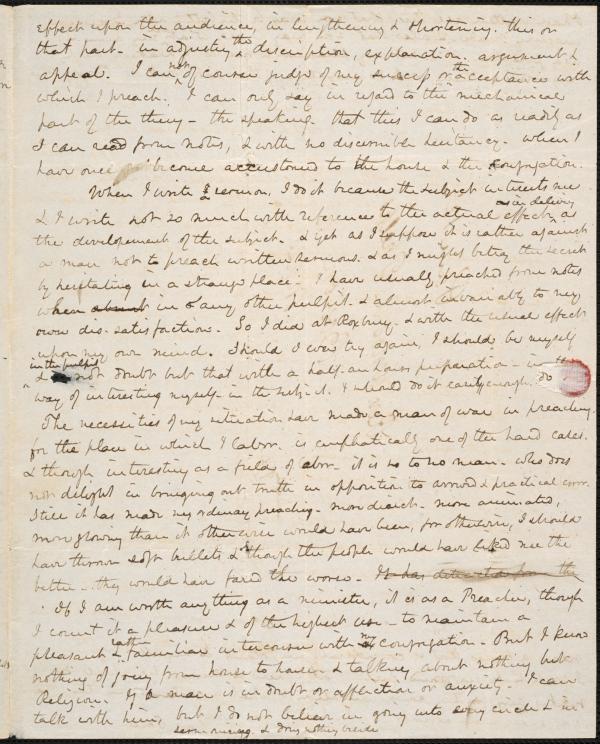 effect upon the audience, in lengthening & shortening this or
that part - in adjusting the discription, explanation, argument &
appeal. I cannot of course judge of my success or the acceptance with
which I preach. I can only say in regard to the mechanical
part of the thing - the speaking that this I can do as readily as
I can read from notes, & with no discernible hesitancy - when I
have once become accustomed to the house & the congregation.
When I write a sermon, I do it because the subject interests me
& I write not so much with reference to the actual effect in delivery as
the developement of the subject. & yet as I suppose it is rather against
a man not to preach written sermons & as I might betray the secret
by hesitating in a strange place - I have usually preached from notes
when in any other pulpit. & almost invariably to my
own dis-satisfaction. So I did at Roxbury - & with the usual effect
upon my own mind. Should I ever try again, I should be myself
in the pulpit
& not doubt but that with a half-an hours preparation - in the
way of interesting myself in the subject. I should do it easily enough.
The necessities of my situation have made a man of war in preaching.
for the place in which I labor is emphatically one of the hard cases.
& though interesting as a field of labor - it is so to no man - who does
not delight in bringing out truth in opposition to avowed & practical error.
Still it has made my ordinary preaching - more direct - more animated,
more glowing than it otherwise would have been, for otherwise, I should
have thrown soft bullets & though the people would have liked me the
better - they would have fared the worse - It has detracted from the
If I am worth anything as a minister, it is as a Preacher, though
I count it a pleasure & of the highest use - to maintain a
pleasant & rather familiar intercourse with my congregation - But I know
nothing of going from house to house & talking about nothing but
Religion. If a man is in doubt or affliction or anxiety - I can
talk with him, but I do not believe in going into every circle & in
sermonizing & doing nothing beside